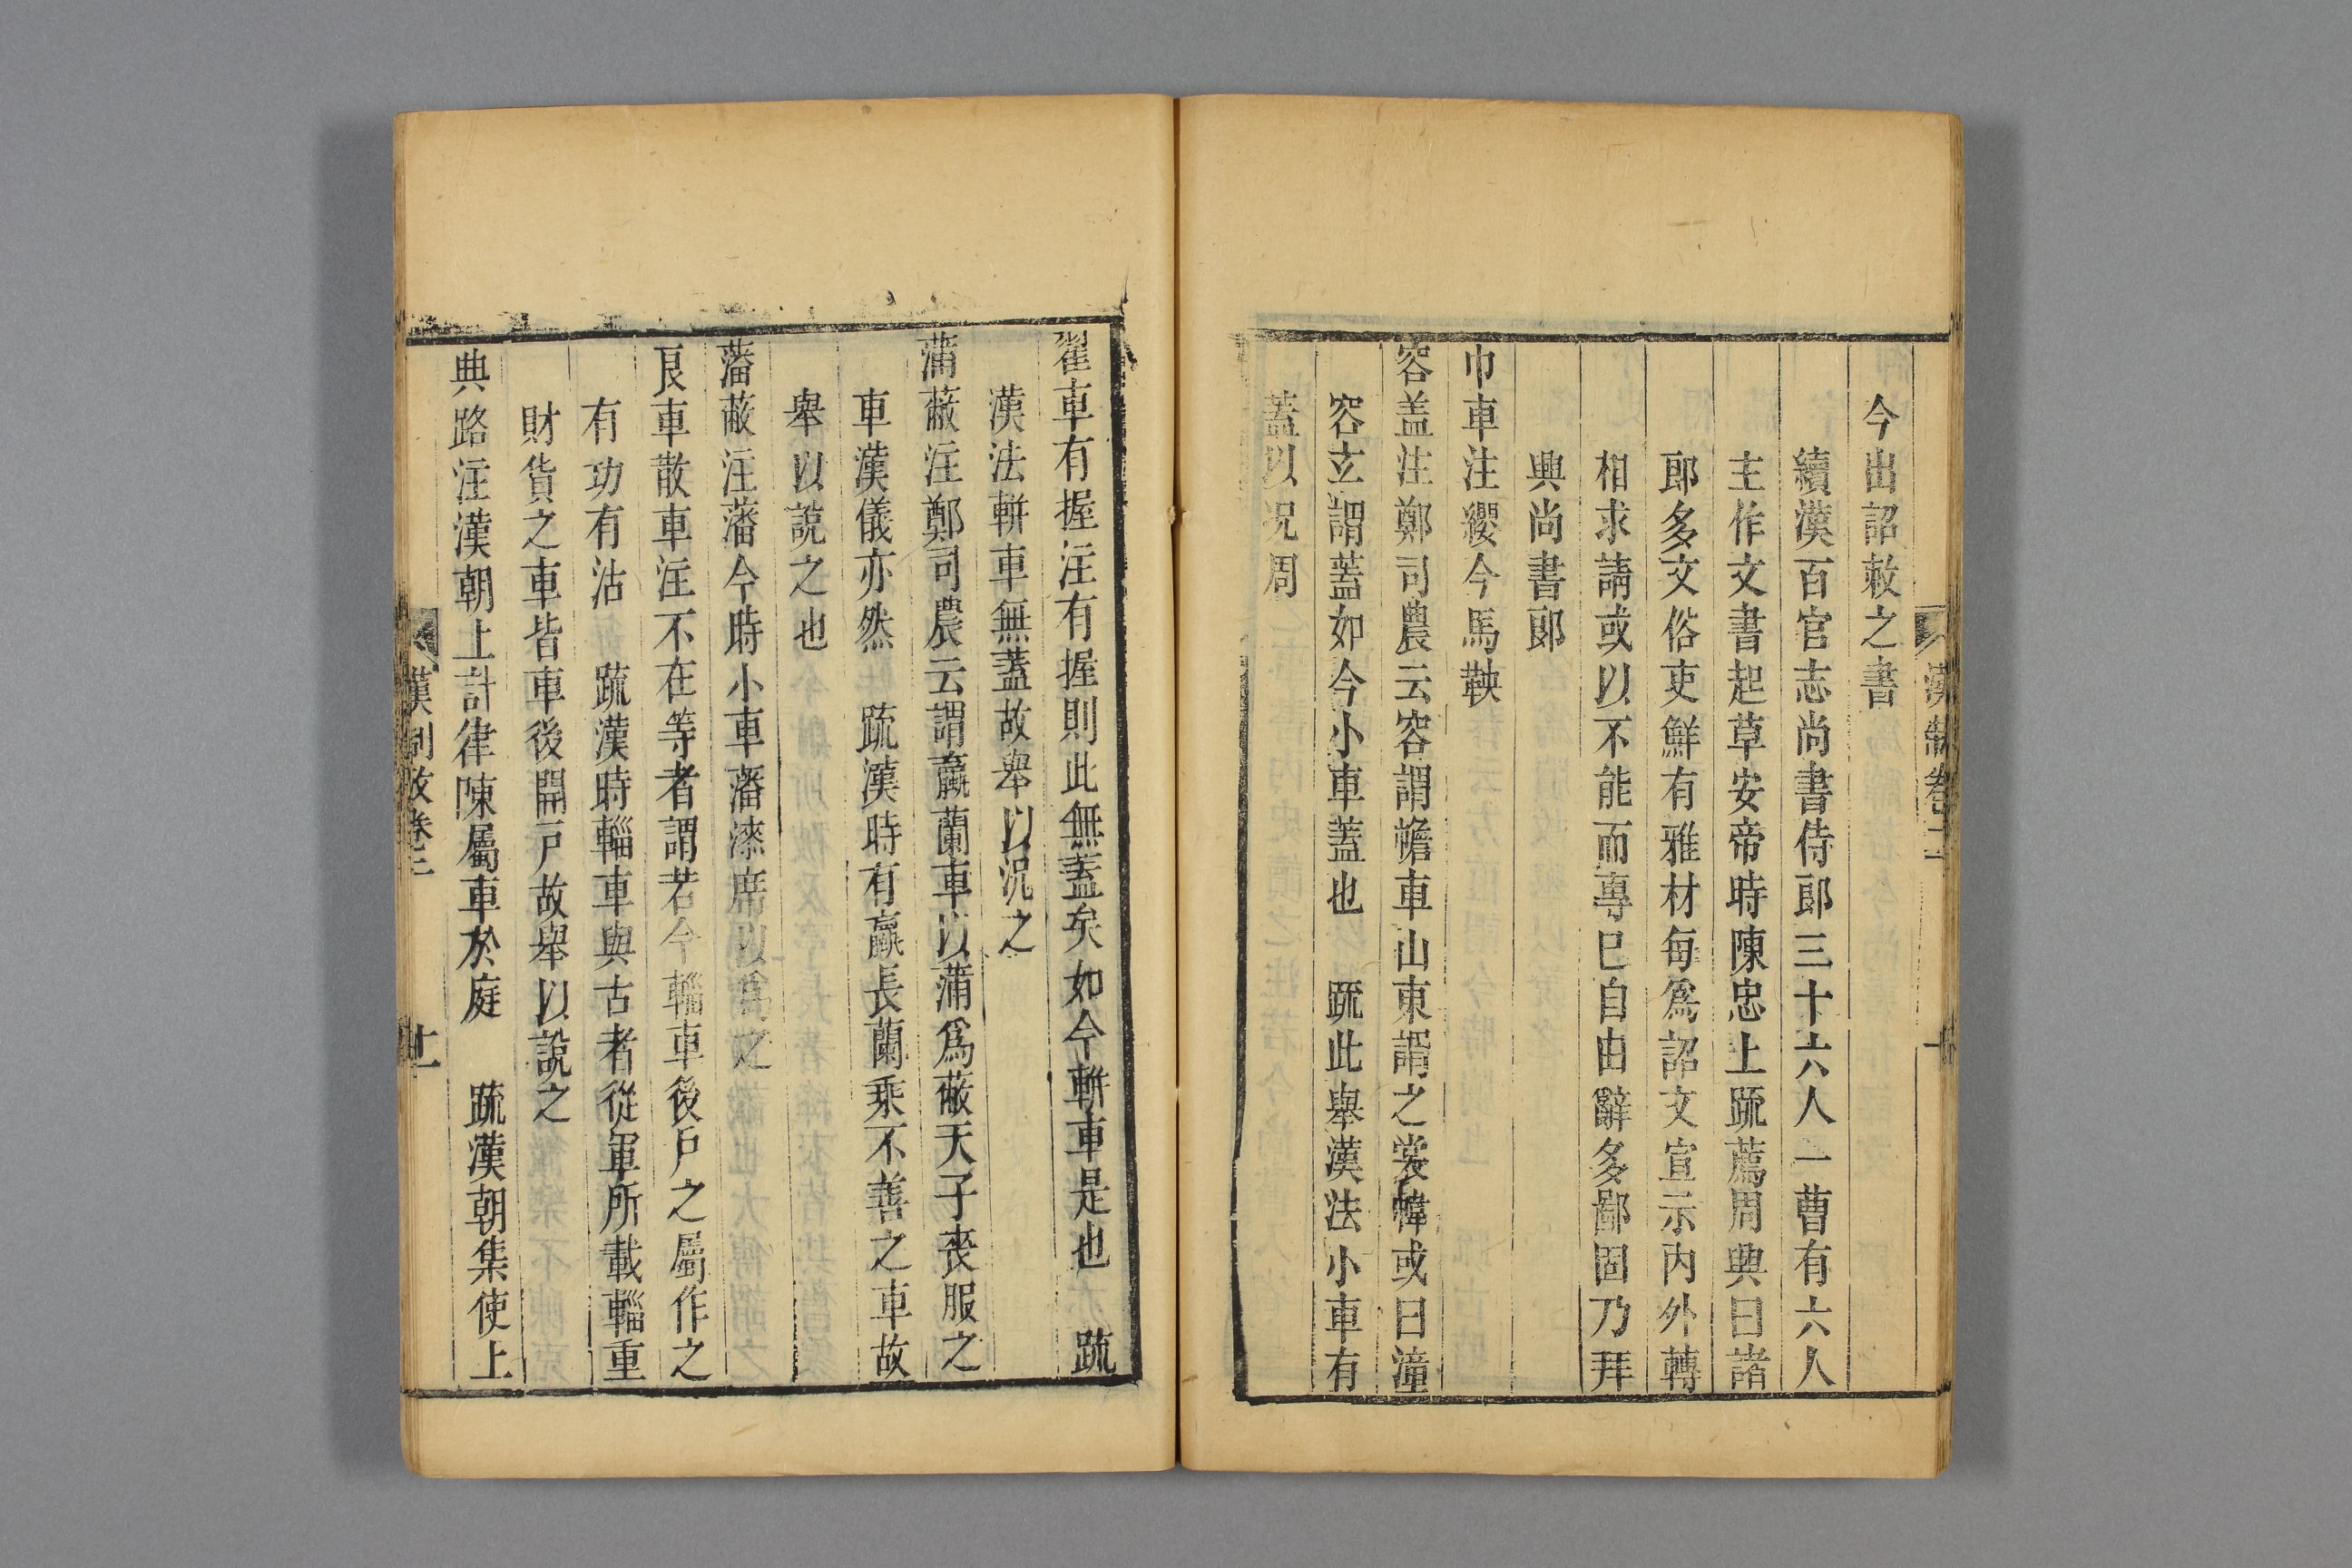 漢制卷二
十
今出詔敕之書
續漢百官志尚書侍郎三十六人一曹有六人
主作文書起草安帝時陳忠上䟽薦周興曰諸
郎多文俗吏鮮有雅材每爲詔文宣示內外轉
相求請或以不能而專已自由辭多鄙固乃拜
興尚書郎
巾車注纓今馬鞅
容盖注鄭司農云容謂幨車山東謂之裳幃或曰潼
容玄謂蓋如今小車蓋也　䟽此舉漢法小車有
蓋以况周
翟車有握注有握則此無蓋矣如今輧車是也　䟽
漢法輧車無蓋故舉以況之
蒲蔽注鄭司農云謂蠃蘭車以蒲爲蔽天子喪服之
車漢儀亦然　䟽漢時有蠃長蘭乘不善之車故
舉以說之也
藩蔽注藩今時小車藩漆席以爲之
良車散車注不在等者謂若今輜車後戶之屬作之
有功有沽　䟽漢時輜車與古者從軍所載輜重
財貨之車皆車後開戶故舉以說之
典路注漢朝上計律陳屬車於庭　䟽漢朝集使上
漢制攷卷二
十一